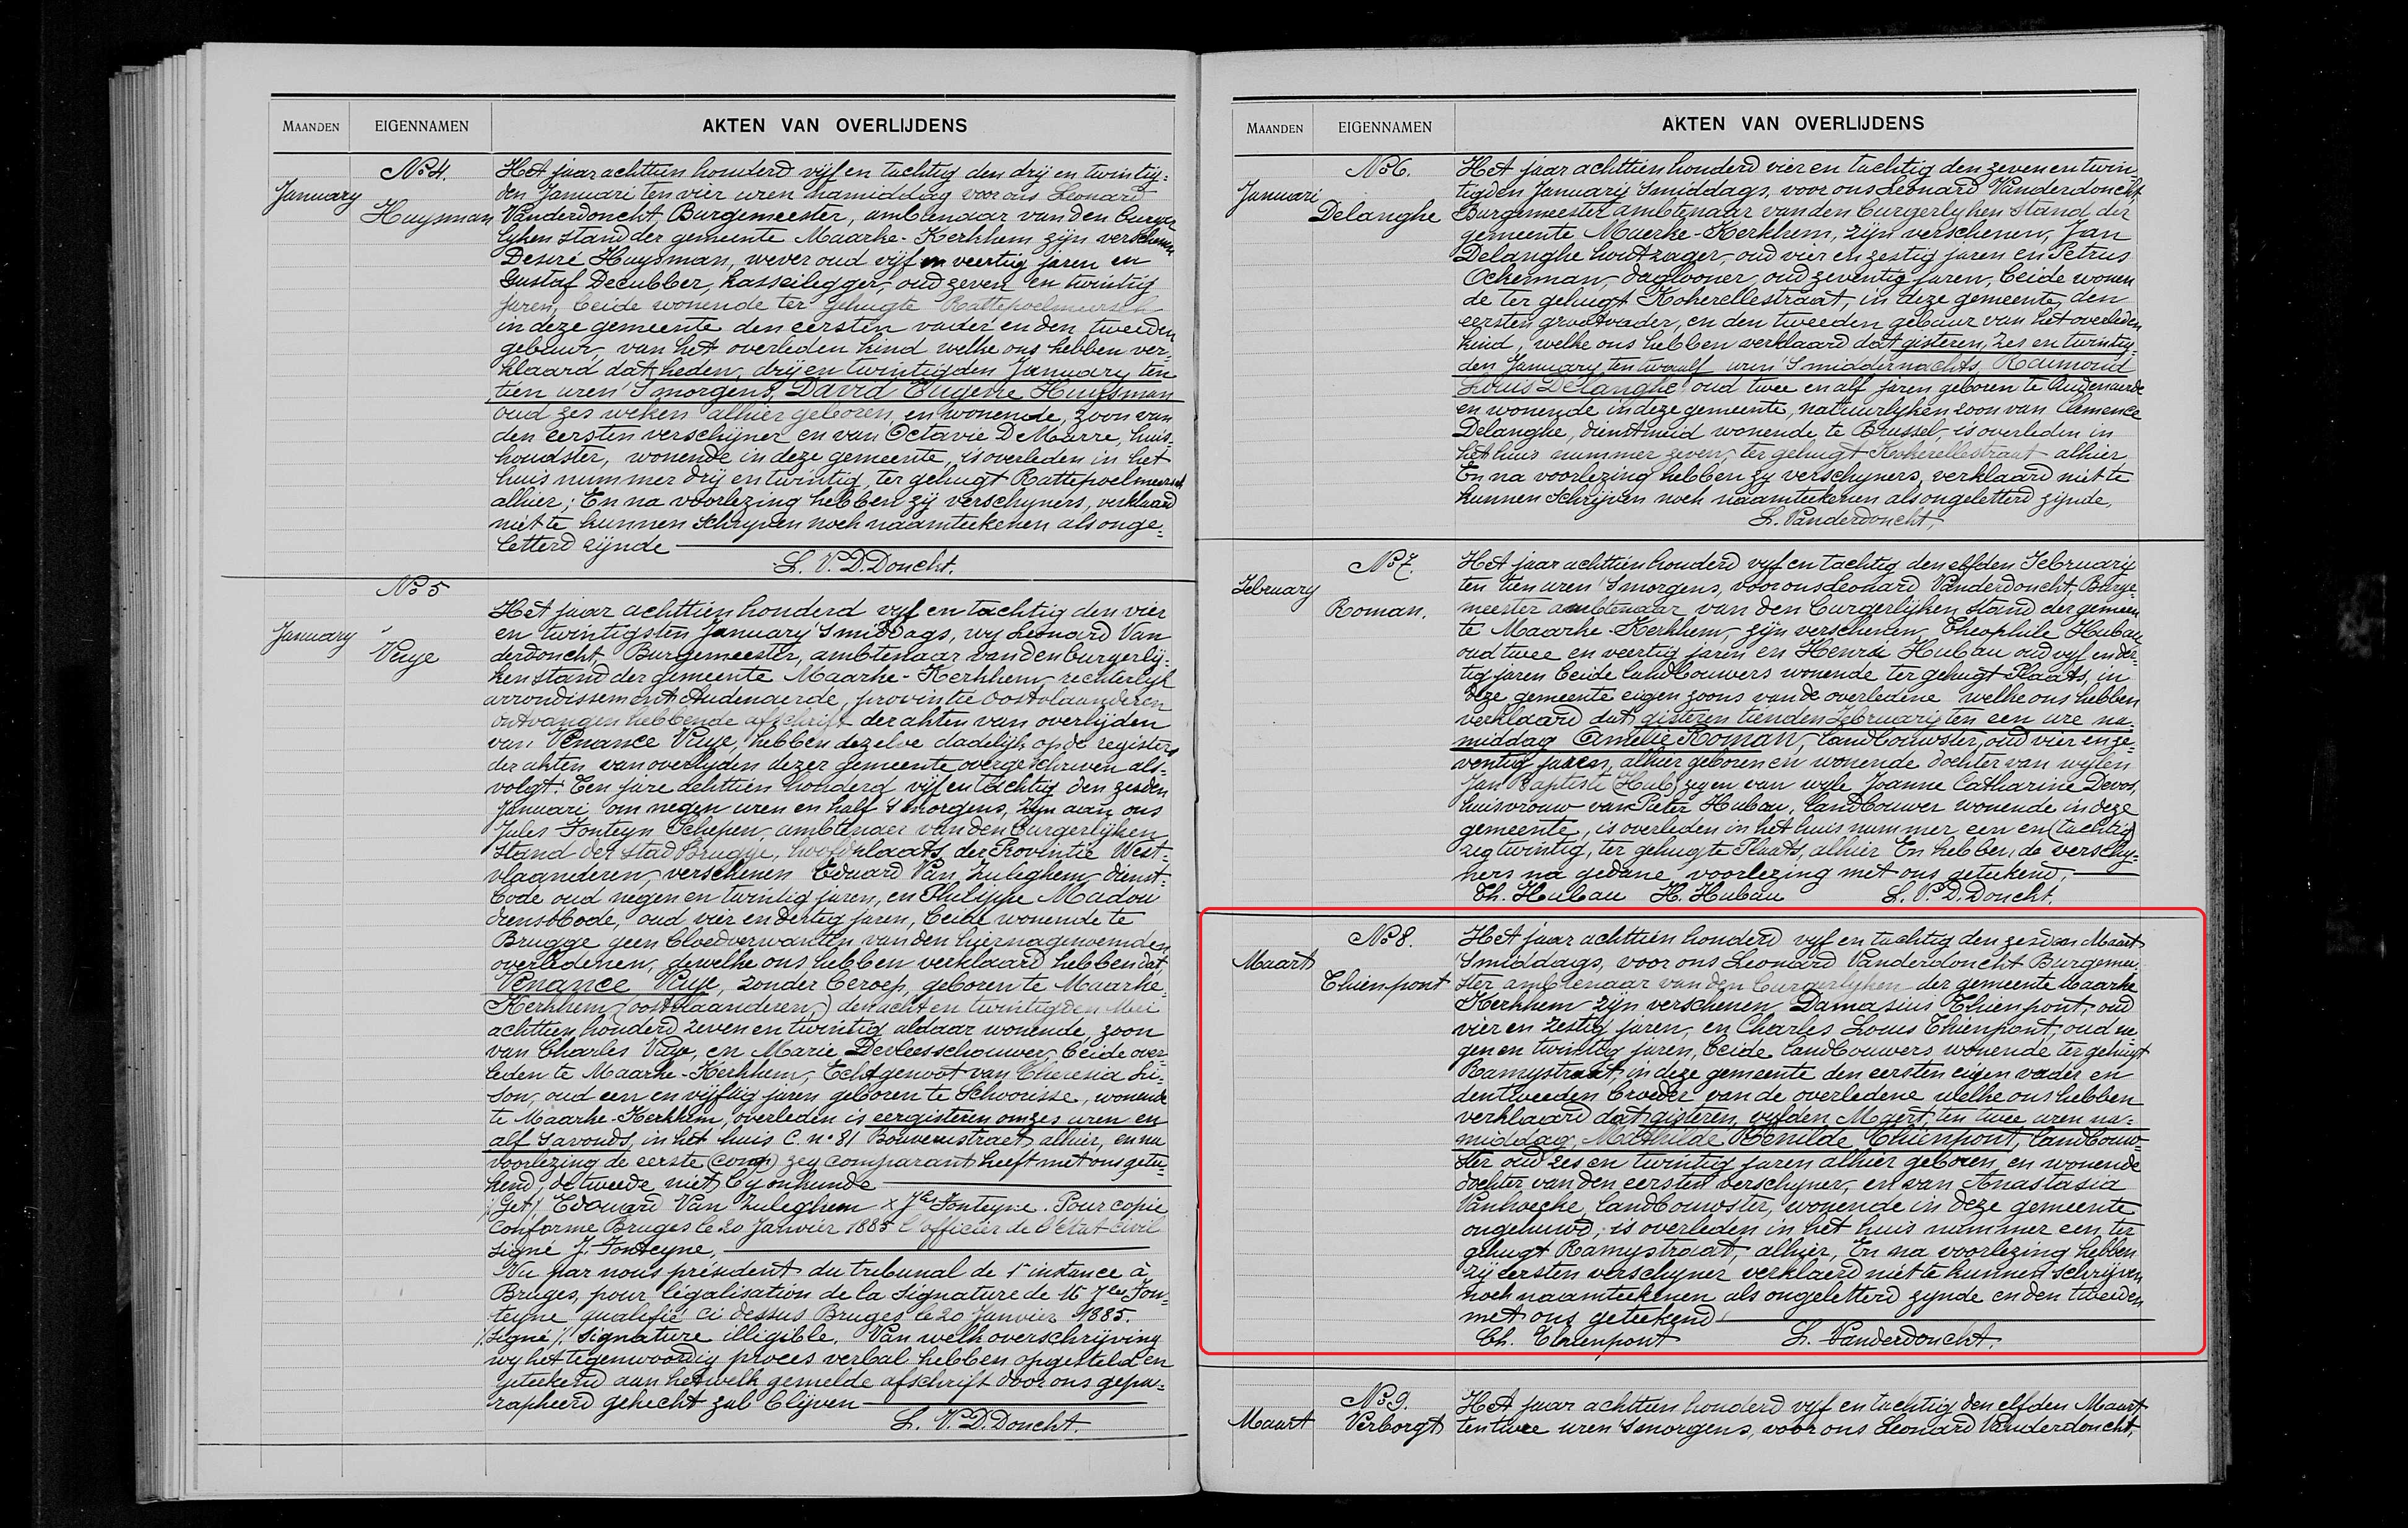 MAANDEN EIGENNAMEN AKTEN VAN OVERLIJDENS
No 4.
January
Huysman
Het jaar achttien honderd vijf en tachtig den drij en twintig-
den Januari ten vier uren namiddag voor ons Leonard
Vanderdoncht Burgemeester, ambtenaar van den burger
lyken stand der gemeente Maarke-Kerkhem zijn verschenen
Desiré Huysman, wever oud vijf en veertig jaren en
Gustaf Decubber, kasseilegger, oud zeven en twintig
jaren, beide wonende ter gehugte Rattepoelmeersch
in deze gemeente den eersten vader en den tweeden
gebuur, van het overleden kind welke ons hebben ver-
klaard dat heden, drij en twintigden January ten
tien uren 's morgens, David Eugene Huysman
oud zes weken alhier geboren, en wonende, zoon van
den eersten verschijner en van Octavie D Marre, huis-
houdster, wonende in deze gemeente, is overleden in het
huis nummer drij en twintig, ter gehugt Rattepoelmeersch
alhier; En na voorlezing hebben zy verschyners, verklaard
niet te kunnen schryven noch naamteekenen als onge-
letterd zijnde
L. V. D. Doncht.
No 5
January
Vuye
Het jaar achttien honderd vyf en tachtig den vier
en twintigsten January 's middags, wy Leonard Van
derdoncht, Burgemeester, ambtenaar van den burgerly-
ken stand der gemeente Maarke-Kerkhem, rechterlyk
arrondissement Audenaerde, provintie Oostvlaanderen
ontvangen hebbende afschrift der akten van overlyden
van Venance Vuye, hebben dezelve dadelijk op de registers
der akten van overlyden dezer gemeente overgeschreven als-
volgt: Een jare achttien honderd vijf en tachtig den zesden
Januari om negen uren en half 's morgens, zyn aan ons
Jules Fonteyn Schepen ambtenaer van den burgerlijken
stand der stad Brugge, hoofdplaats der Provintie West-
vlaanderen, verschenen Eduard Van Zuleghem dienst-
bode oud negen en twintig jaren, en Philippe Madou
dienstbode, oud vier en dertig jaren, beide wonende te
Brugge geen bloedverwanten van den hiernagenoemden
overledenen, dewelke ons hebben verklaard hebben dat
Venance Vuye, zonder beroep, geboren te Maarke-
Kerkhem (oostvlaanderen) den acht en twintigden Mei
achttien honderd zeven en twintig aldaar wonende, zoon
van Charles Vuye, en Marie Devleesschouwer, beide over-
leden te Maarke-Kerkhem, Echtgenoot van Theresia Li-
son, oud een en vyftig jaren geboren te Schoorisse, wonende
te Maarke-Kerkhem, overleden is eergisteren om zes uren en
alf s avonds, in het huis C. no. 81 Bouveriestraet alhier, en na
voorlezing de eerste (comp) zeg comparant heeft met ons getee-
kend, de tweede niet by onkunde
(Get) Edouard Van Zuleghem x Jles Fonteyne. Pour copie
Conforme Bruges le 20 Janvier 1885 l'officier de l'état civil
signé J. Fonteyne,
Vu par nous président du tribunal de 1e instance à
Bruges, pour légalisation de la signature de M Jles Fon-
teyne qualifié ci dessus Bruges le 20 Janvier 1885.
(signé) signature illigible. Van welk overschrijving
wy het tegenwoordig proces verbal hebben opgesteld en
geteekend aan hetwelk gemelde afschrift door ons gepa-
rapheerd gehecht zal blijven
L. V. D. Doncht.
MAANDEN EIGENNAMEN AKTEN VAN OVERLIJDENS
No 6.
Januari
Delanghe
Het jaar achttien honderd vier en tachtig den zeven en twin-
tigden January 's middags, voor ons Leonard Vanderdoncht,
Burgemeester ambtenaar van den burgerlyken stand der
gemeente Maerke-Kerkhem, zijn verschenen, Jan
Delanghe houtzager, oud vier en zestig jaren en Petrus
Ockerman, daglooner, oud zeventig jaren, beide wonen
de ter gehugt Kokerellestraat, in deze gemeente, den
eersten grootvader, en den tweeden gebuur van het overleden
kind, welke ons hebben verklaard dat gisteren, zes en twintig-
den January ten twaalf uren 's middernachts Raimond
Louis Delanghe oud twee en alf jaren geboren te Audenaerde
en wonende in deze gemeente, natuurlyken zoon van Clemence
Delanghe, dienstmeid wonende te Brussel, is overleden in
het huis nummer zeven, ter gehugt Kokerellestraat alhier
En na voorlezing hebben zy verschyners, verklaard niet te
kunnen schrijven noch naamteekenen als ongeletterd zijnde.
L. Vanderdoncht
No 7.
February
Roman.
Het jaar achttien honderd vyf en tachtig den elfden February
ten tien uren 's morgens, voor ons Leonard Vanderdoncht, Burge-
meester ambtenaar van den burgerlijken stand der gemeen
te Maarke-Kerkhem, zijn verschenen Theophile Hubau
oud twee en veertig jaren en Henri Hubau oud vyf en der-
tig jaren beide landbouwers wonende ter gehugt Plaats, in
deze gemeente eigen zoons van de overledene welke ons hebben
verklaard dat gisteren tienden February ten een ure na-
middag Amelie Roman, landbouwster, oud vier en ze-
ventig jaren, alhier geboren en wonende dochter van wylen
Jan Baptiste (Hub) zegen van wyle Joanne Catharine Devos,
huisvrouw van Pieter Hubau, landbouwer wonende in deze
gemeente, is overleden in het huis nummer een en (tachtig)
zeg twintig, ter gehugte Plaats, alhier En hebben de verschy-
ners na gedane voorlezing met ons geteekend,
Th. Hubau H. Hubau L. V. D. Doncht.
No 8.
Maart
Thienpont
Het jaar achttien honderd vyf en tachtig den zesden Maart
's middags, voor ons Leonard Vanderdoncht Burgemee-
ster ambtenaar van den burgerlyken der gemeente Maarke
Kerkhem zijn verschenen Damasius Thienpont, oud
vier en zestig jaren, en Charles Louis Thienpont, oud ne-
gen en twintig jaren, beide landbouwers, wonende ter gehugt
Ramystraat, in deze gemeente den eersten eigen vader en
den tweeden broeder van de overledene welke ons hebben
verklaard dat gisteren vyfden Maert, ten twee uren na-
middag, Mathilde Renilde Thienpont, landbouw-
ster oud zes en twintig jaren alhier geboren, en wonende
dochter van den eersten verschyner, en van Anastasia
Vanhoecke, landbouwster, wonende in deze gemeente
ongehuwd, is overleden in het huis nummer een, ter
gehugt Ramystraat, alhier, En na voorlezing hebben
zij eersten verschyner verklaerd niet te kunnen schrijven
noch naamteekenen als ongeletterd zynde en den tweeden
met ons geteekend
Ch. Thienpont L. Vanderdoncht.
No 9.
Maart
Verborgt
Het jaar achttien honderd vyf en tachtig den elfden Maart
ten twee uren 's morgens, voor ons Leonard Vanderdoncht,